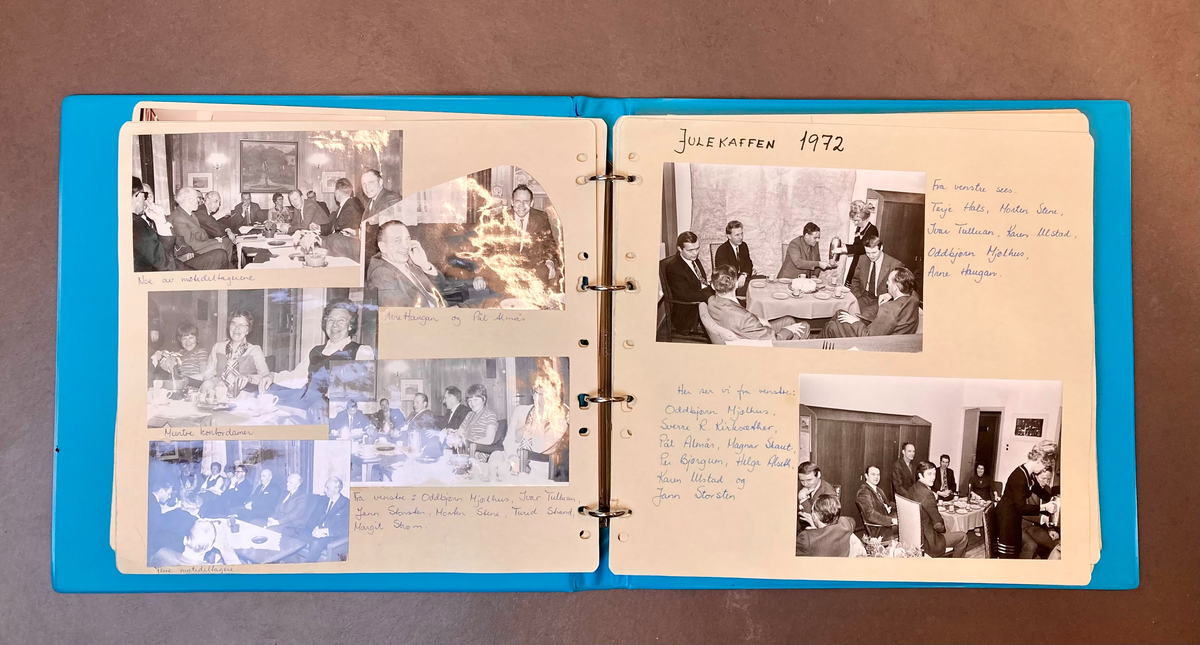 Noe av møtedeltagerne
Arne Haugan og Pål Almås
Muntre kontordamer
Fra venstre: Oddbjørn Mjølhus, Ivar Tulluan,
Jann Storsten, Morten Stene, Turid Strand,
Margit Strøm.
møtedeltagere
JULEKAFFEN 1972
Fra venstre sees.
Terje Hals, Morten Stene,
Ivar Tulluan, Karen Ulstad,
Oddbjørn Mjølhus,
Arne Haugan.
Her ser vi fra venstre:
Oddbjørn Mjølhus,
Sverre R. Kirksæther,
Pål Almås, Magnar Skaut,
Per Bjørgum, Helga
Karen Ulstad og
Jann Storsten